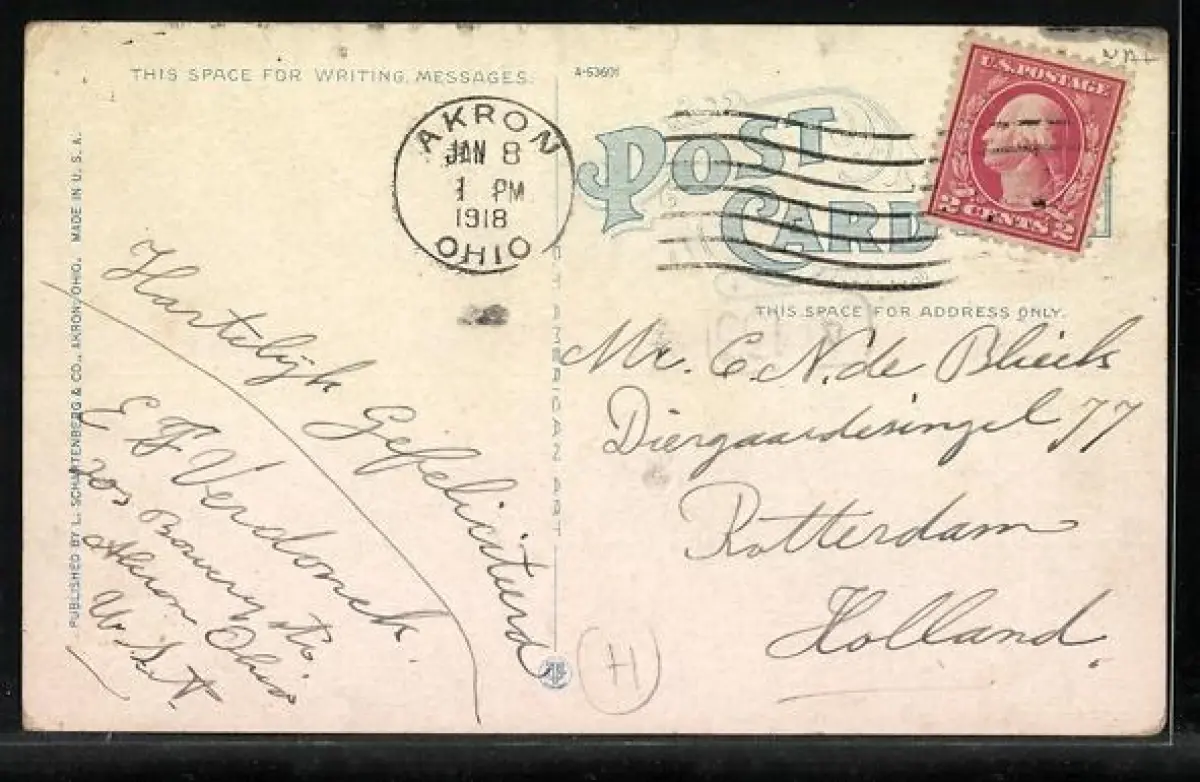 THIS SPACE FOR WRITING MESSAGES.
A-53601
POST CARD
U.S. POSTAGE
2 CENTS 2
AKRON
JAN 8
1 PM
1918
OHIO
THIS SPACE FOR ADDRESS ONLY.
PUBLISHED BY L. SCHARTENBERG & CO., AKRON, OHIO. MADE IN U.S.A.
Hartelijk Gefeliciteerd
E F Verdonck.
203 Bowery Str.
Akron Ohio
U.S.A.
AMERICAN ART
Mr. C. N. de Blieck
Diergaardesingel 77
Rotterdam
Holland.
H